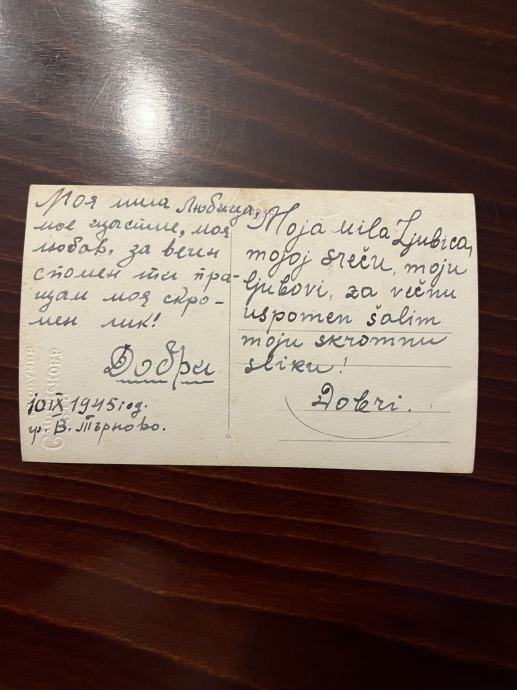 Моя мила Любица,
мое щастие, моя
любов, за вечен
спомен ти пра-
щам моя скро-
мен лик!
Добри
10 IX 1945 год.
гр. В. Търново.
Moja mila Ljubica,
mojoj sreću, moju
ljubovi, za večnu
uspomen šalim
moju skromnu
sliku!
Dobri.